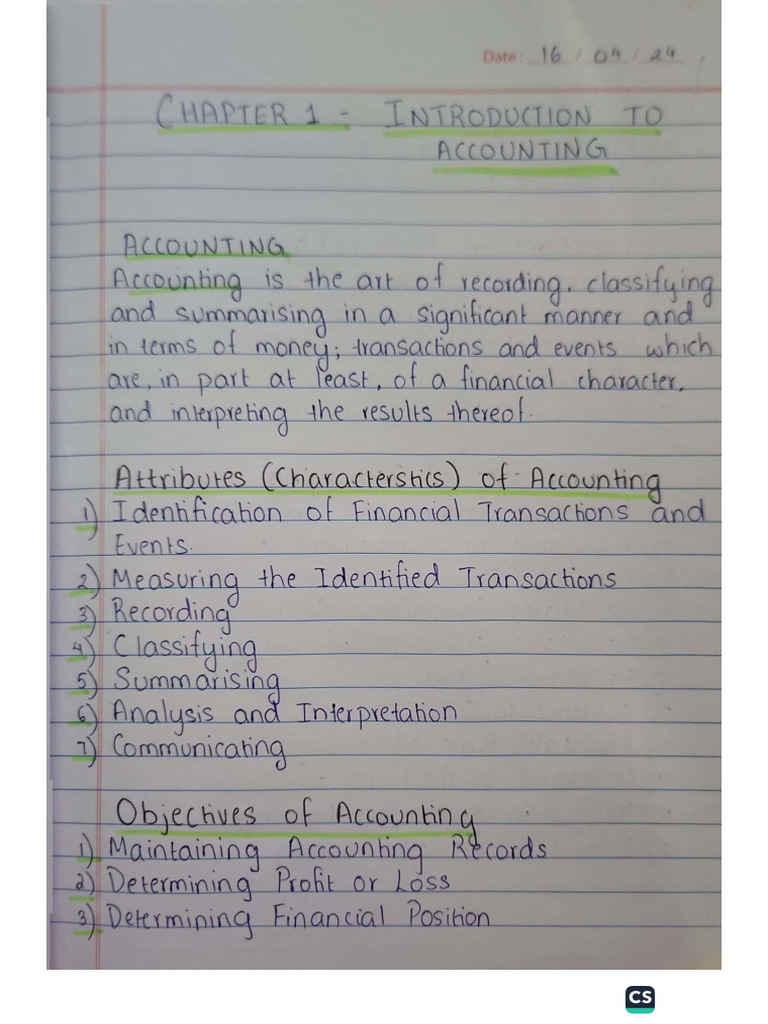 Date: 16 / 04 / 24
CHAPTER 1 - INTRODUCTION TO
ACCOUNTING
ACCOUNTING
Accounting is the art of recording, classifying
and summarising in a significant manner and
in terms of money; transactions and events which
are, in part at least, of a financial character,
and interpreting the results thereof.
Attributes (Characterstics) of Accounting
1) Identification of Financial Transactions and
Events.
2) Measuring the Identified Transactions
3) Recording
4) Classifying
5) Summarising
6) Analysis and Interpretation
7) Communicating
Objectives of Accounting
1) Maintaining Accounting Records
2) Determining Profit or Loss
3) Determining Financial Position
CS